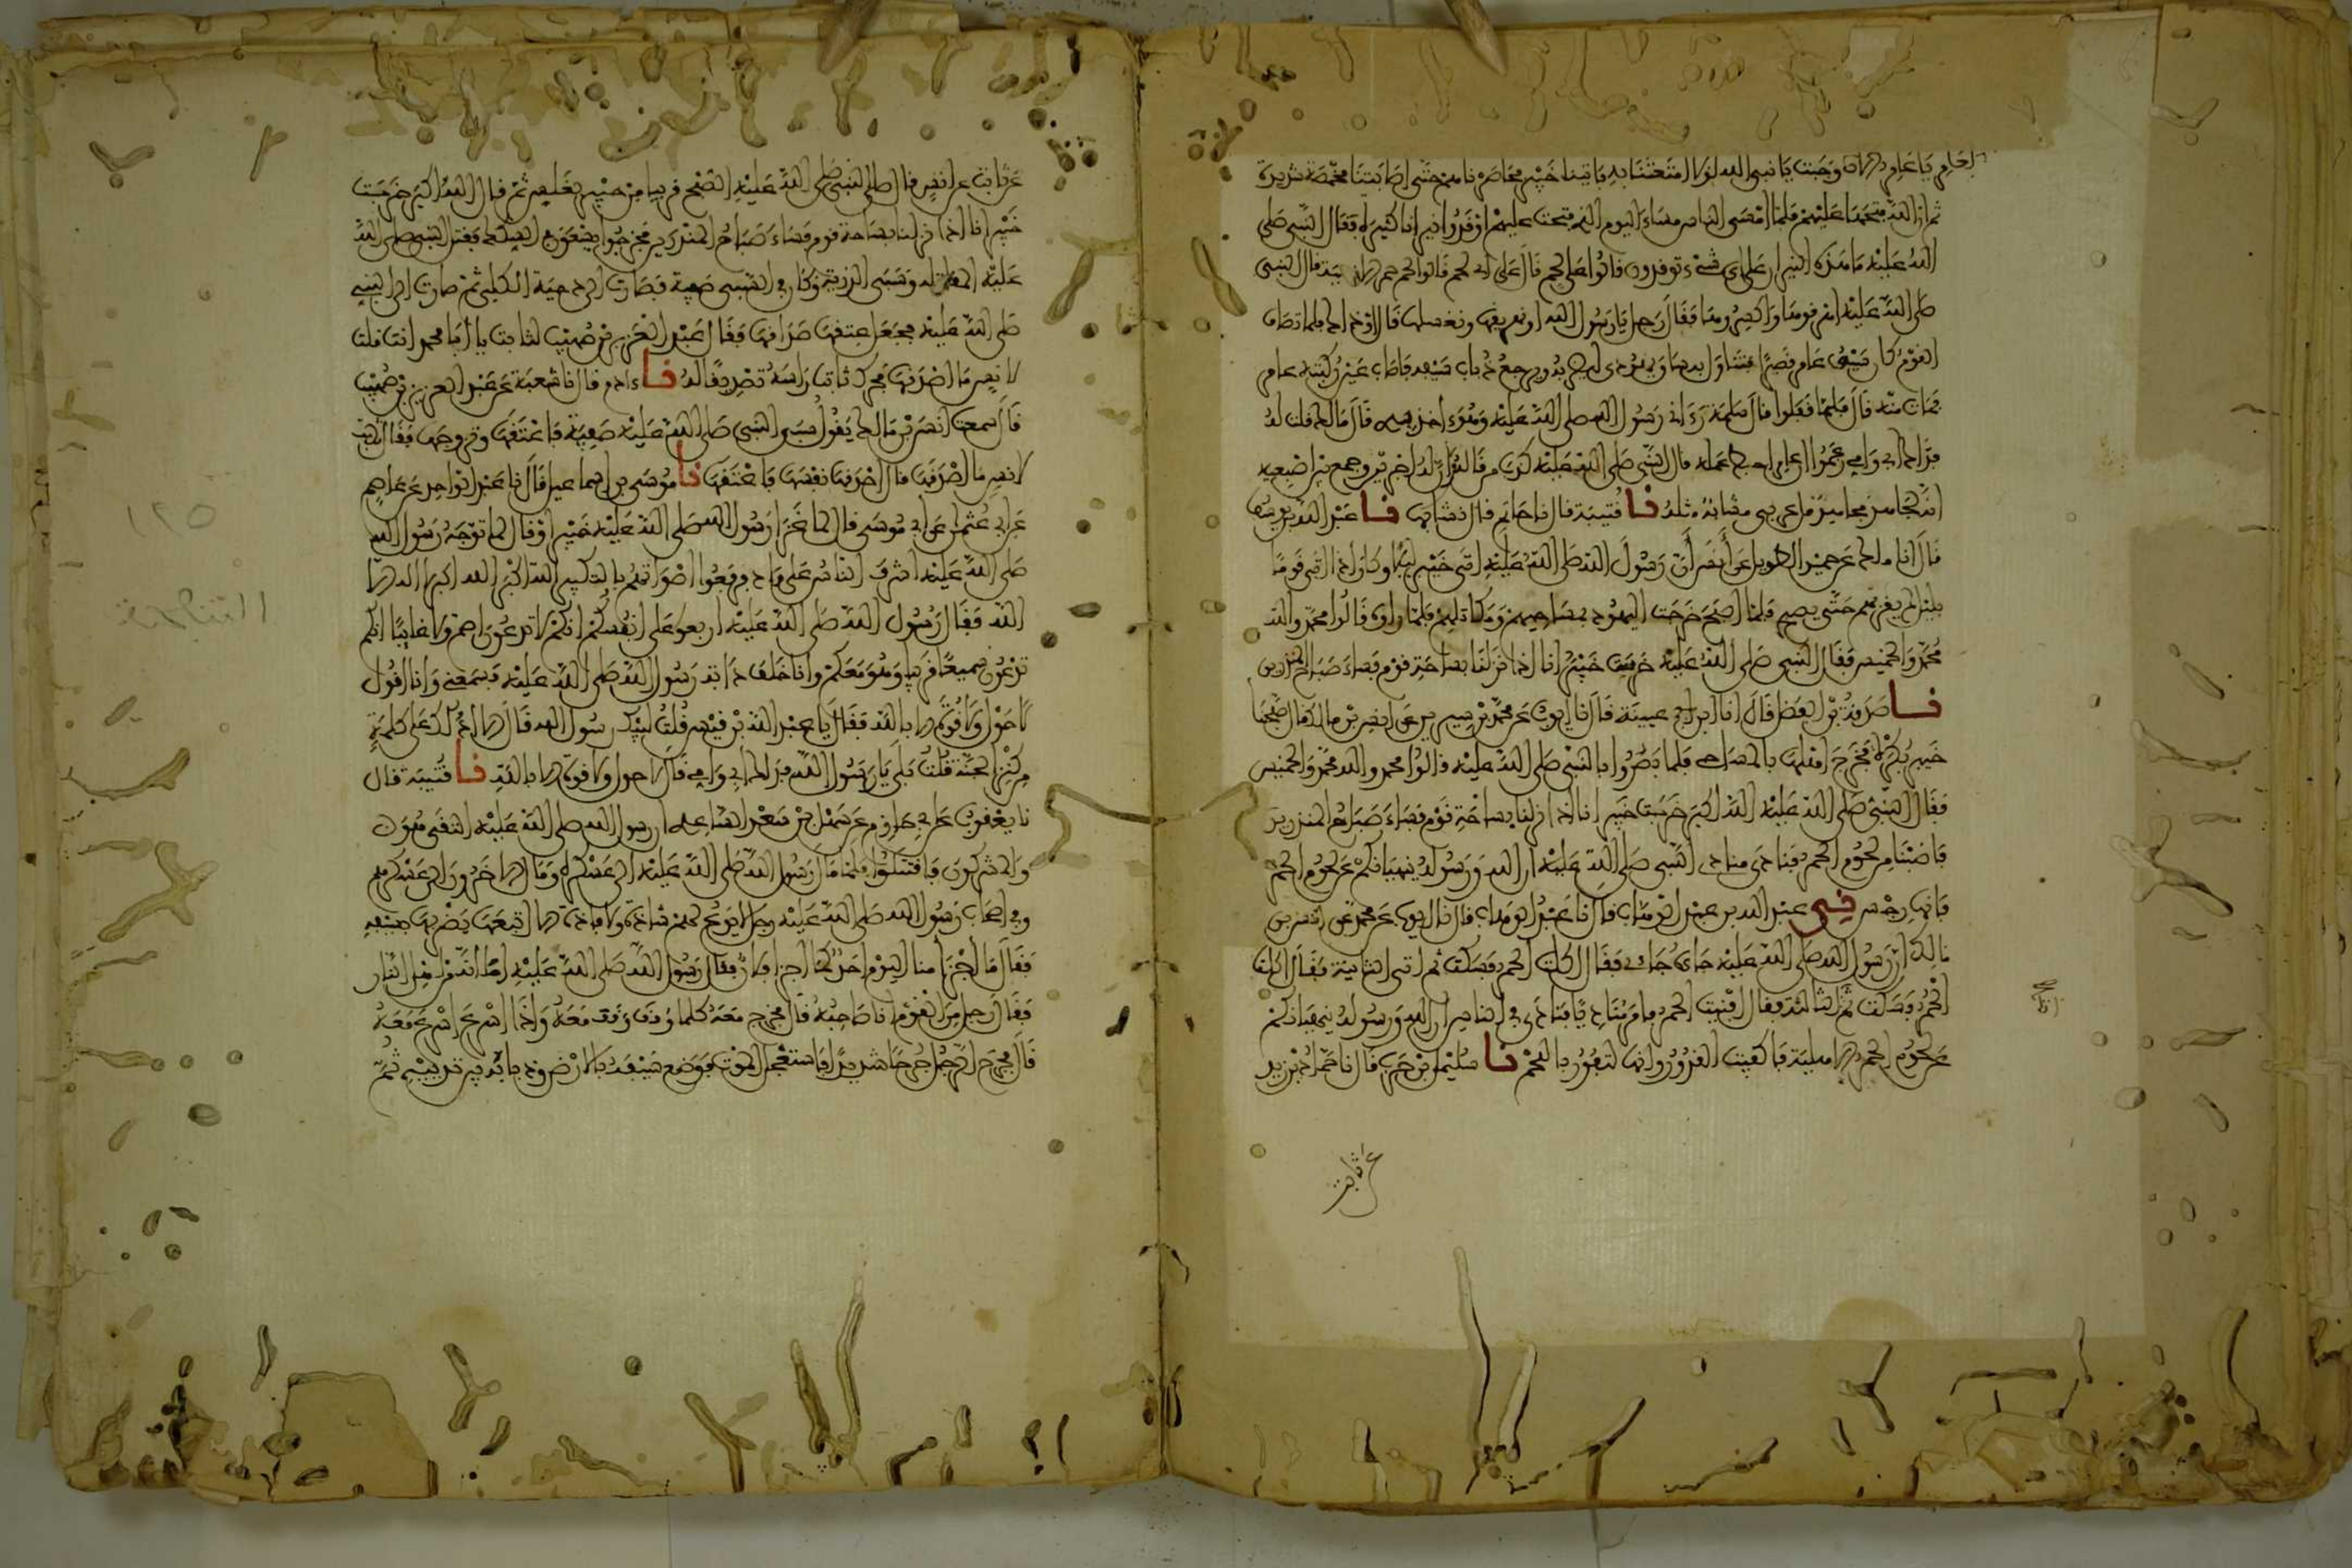 ثم ان الله فتحها عليهم فلما امسى الناس مساء اليوم الذي فتحت عليهم اوقدوا نيرانا كثيرة فقال النبي صلى
الله عليه ما هذه النيران على اي شيء توقدون قالوا على لحم قال على اي لحم قالوا لحم حمر انسية قال النبي
صلى الله عليه اهريقوها واكسروها فقال رجل يا رسول الله او نهريقها ونغسلها قال او ذاك فلما تصاف
القوم كان سيف عامر قصيرا فتناول به ساق يهودي ليضربه ويرجع ذباب سيفه فاصاب عين ركبة عامر
فمات منه قال فلما قفلوا قال سلمة رءاني رسول الله صلى الله عليه وهو ءاخذ بيدي قال مالك قلت له
فداك ابي وامي زعموا ان عامرا حبط عمله قال النبي صلى الله عليه كذب من قاله ان له اجرين وجمع بين اصبعيه
انه لجاهد مجاهد قل عربي مشابها مثله نا قتيبة قال نا حاتم قال نشا بها نا عبد الله بن يوسف
قال انا ملك عن حميد الطويل عن أنس أن رسول الله صلى الله عليه اتى خيبر ليلا وكان اذا اتى قوما
بليل لم يغر بهم حتى يصبح فلما اصبح خرجت اليهود بمساحيهم ومكاتلهم فلما راوه قالوا محمد والله
محمد والخميس فقال النبي صلى الله عليه خربت خيبر انا اذا نزلنا بساحة قوم فساء صباح المنذرين
نا صدقة بن الفضل قال انا ابن عيينة قال نا ايوب عن محمد بن سيرين عن انس بن مالك قال صبحنا
خيبر بكرة فخرج اهلها بالمساحي فلما بصروا بالنبي صلى الله عليه قالوا محمد والله محمد والخميس
فقال النبي صلى الله عليه الله اكبر خربت خيبر انا اذا نزلنا بساحة قوم فساء صباح المنذرين
فاصبنا من لحوم الحمر فنادى منادي النبي صلى الله عليه ان الله ورسوله ينهيانكم عن لحوم الحمر
فانها رجس نى عبد الله بن عبد الوهاب قال نا عبد الوهاب قال نا ايوب عن محمد عن انس بن
مالك ان رسول الله صلى الله عليه جاءه جاء فقال اكلت الحمر فسكت ثم اتى الثانية فقال اكلت
الحمر فسكت ثم الثالثة فقال افنيت الحمر فامر مناديا فنادى في الناس ان الله ورسوله ينهيانكم
عن لحوم الحمر الاهلية فاكفيت القدور وانها لتفور باللحم نا سليمان بن حرب قال نا حماد بن زيد
عن ثابت
عن ثابت عن انس قال صلى النبي صلى الله عليه الصبح قريبا من خيبر بغلس ثم قال الله اكبر خربت
خيبر انا اذا نزلنا بساحة قوم فساء صباح المنذرين فخرجوا يسعون في السكك فقتل النبي صلى الله
عليه المقاتلة وسبى الذرية وكان في السبي صفية فصارت الى دحية الكلبي ثم صارت الى النبي
صلى الله عليه فجعل عتقها صداقها فقال عبد العزيز بن صهيب لثابت يا ابا محمد انت قلت
لانس ما اصدقها فحرك ثابت راسه تصديقا له نا ءادم قال نا شعبة عن عبد العزيز بن صهيب
قال سمعت انس بن مالك يقول سبى النبي صلى الله عليه صفية فاعتقها وتزوجها فقال ثابت
لانس ما اصدقها قال اصدقها نفسها فاعتقها نا موسى بن اسماعيل قال نا عبد الواحد عن عاصم
عن ابي عثمان عن ابي موسى قال لما غزا رسول الله صلى الله عليه خيبر او قال لما توجه رسول الله
صلى الله عليه اشرف الناس على واد فرفعوا اصواتهم بالتكبير الله اكبر الله اكبر لا اله الا
الله فقال رسول الله صلى الله عليه اربعوا على انفسكم انكم لا تدعون اصم ولا غايبا انكم
تدعون سميعا قريبا وهو معكم وانا خلف دابة رسول الله صلى الله عليه فسمعني وانا اقول
لا حول ولا قوة الا بالله فقال يا عبد الله بن قيس قلت لبيك رسول الله قال الا ادلك على كلمة
من كنز الجنة قلت بلى يا رسول الله فداك ابي وامي قال لا حول ولا قوة الا بالله نا قتيبة قال
نا يعقوب عن ابي حازم عن سهل بن سعد الساعدي ان رسول الله صلى الله عليه التقى هو
والمشركون فاقتتلوا فلما مال رسول الله صلى الله عليه الى عسكره ومال الاخرون الى عسكرهم
وفي اصحاب رسول الله صلى الله عليه رجل لا يدع لهم شاذة ولا فاذة الا اتبعها يضربها بسيفه
فقال ما اجزا منا اليوم احد كما اجزا فلان فقال رسول الله صلى الله عليه اما انه من اهل النار
فقال رجل من القوم انا صاحبه قال فخرج معه كلما وقف وقف معه واذا اسرع اسرع معه
قال فجرح الرجل جرحا شديدا فاستعجل الموت فوضع سيفه بالارض وذبابه بين ثدييه ثم
١٢٥